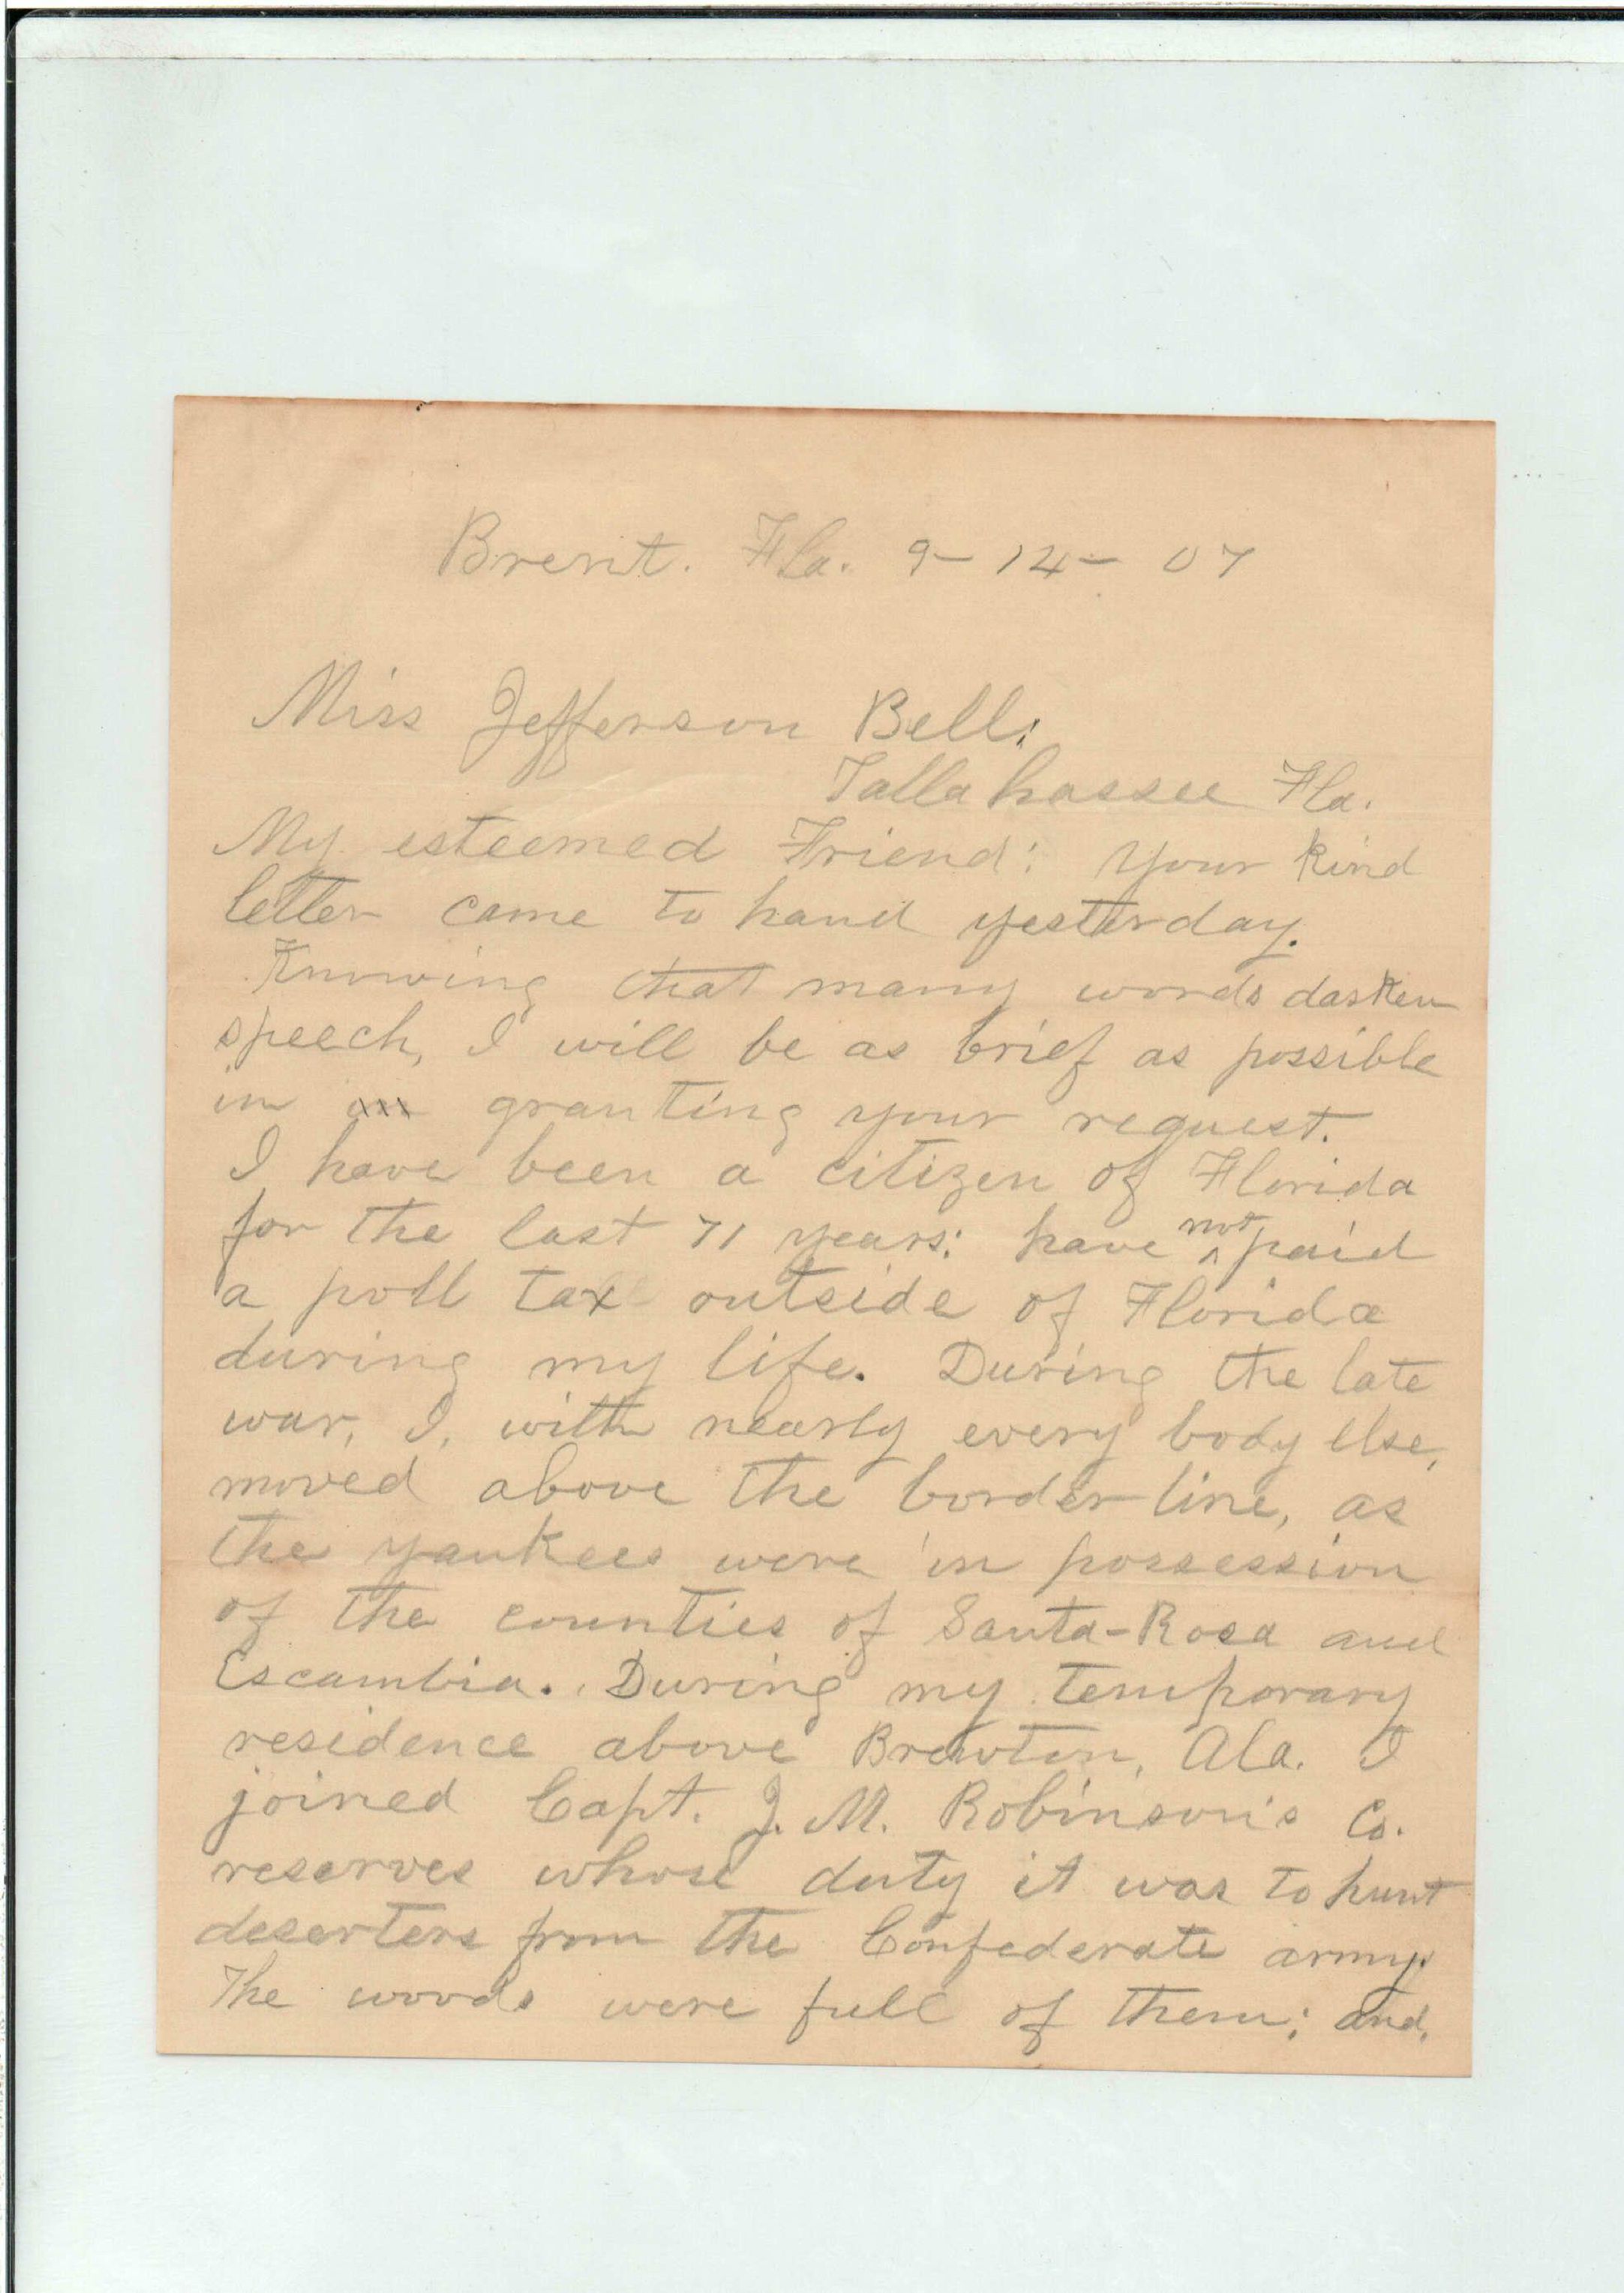 Brent. Fla. 9-14-07
Miss Jefferson Bell:
Tallahassee Fla.
My esteemed Friend: Your kind
letter came to hand yesterday.
Knowing that many words darken
speech, I will be as brief as possible
in granting your request.
I have been a citizen of Florida
for the last 71 years: have not paid
a poll tax outside of Florida
during my life. During the late
war, I, with nearly every body else,
moved above the border line, as
the yankees were in possession
of the counties of Santa-Rosa and
Escambia. During my temporary
residence above Brewton, Ala. I
joined Capt. J. M. Robinson's Co.
reserves whose duty it was to hunt
deserters from the Confederate army.
The woods were full of them; and,